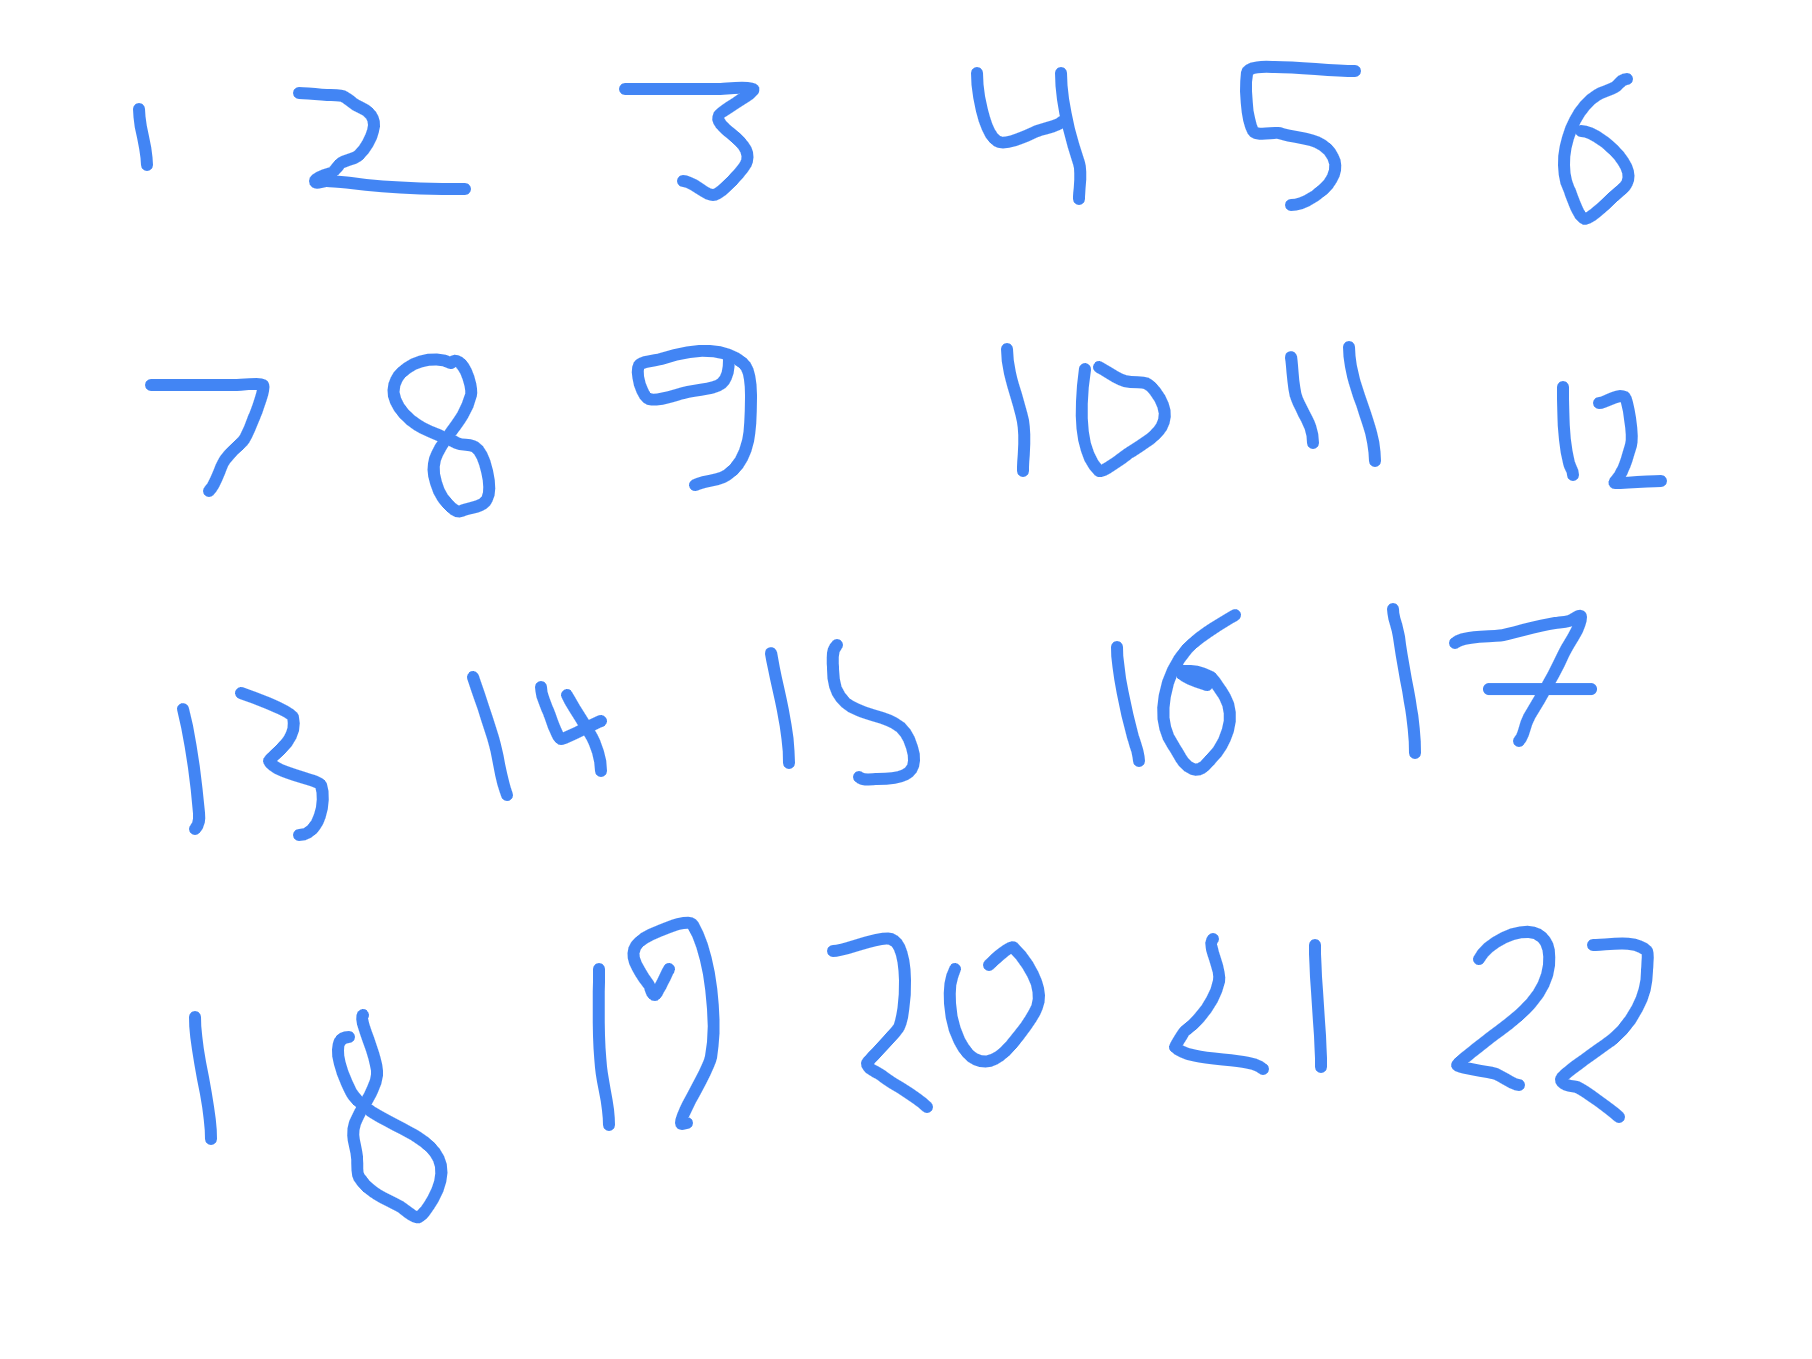 1 2 3 4 5 6
7 8 9 10 11 12
13 14 15 16 17
18 19 20 21 22